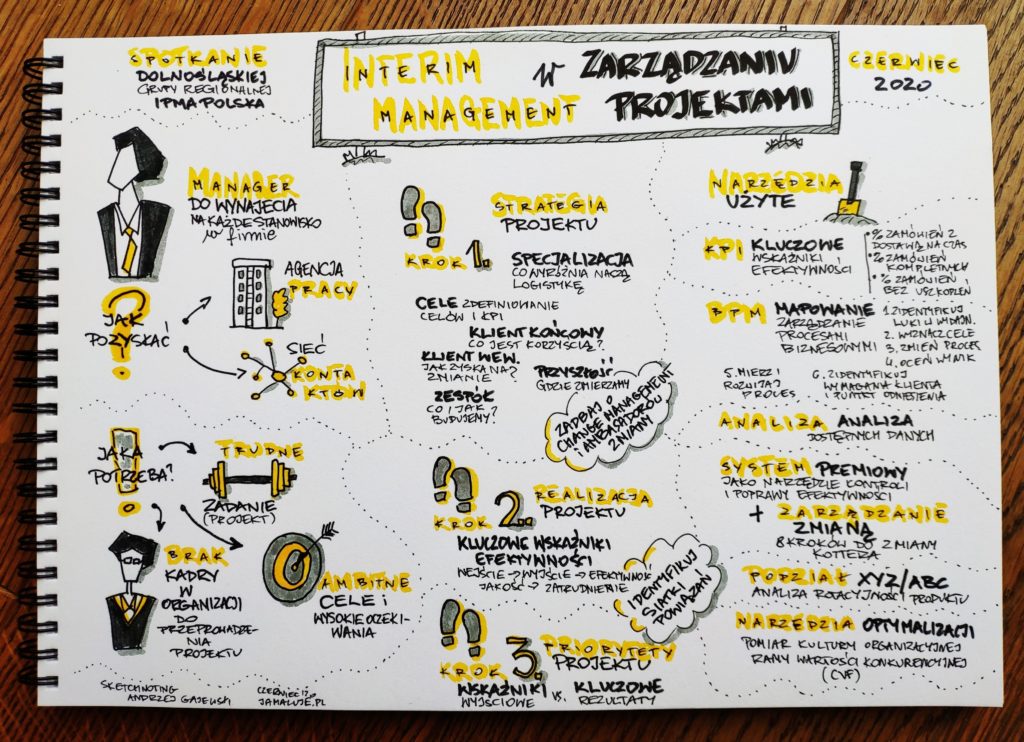 SPOTKANIE
DOLNOŚLĄSKIEJ
GRUPY REGIONALNEJ
IPMA POLSKA
INTERIM
MANAGEMENT
W
ZARZĄDZANIU
PROJEKTAMI
CZERWIEC
2020
MANAGER
DO WYNAJĘCIA
NA KAŻDE STANOWISKO
w firmie
JAK
POZYSKAĆ
?
AGENCJA
PRACY
SIEĆ
KONTA
KTÓW
JAKA
POTRZEBA?
TRUDNE
ZADANIE
(PROJEKT)
BRAK
KADRY
W
ORGANIZACJI
DO
PRZEPROWADZE-
NIA
PROJEKTU
AMBITNE
CELE I
WYSOKIE OCZEKI-
WANIA
SKETCHNOTING
ANDRZEJ GAJEWSKI
JAMALUJE.PL
KROK 1.
STRATEGIA
PROJEKTU
SPECJALIZACJA
CO WYRÓŻNIA NASZĄ
LOGISTYKĘ
CELE ZDEFINIOWANIE
CELÓW I KPI
KLIENT KOŃCOWY
CO JEST KORZYŚCIĄ?
KLIENT WEW.
JAK ZYSKA NA?
ZMIANIE
PRZYSZŁOŚĆ
GDZIE ZMIERZAMY
ZESPÓŁ
CO I JAK?
BUDUJEMY?
ZADBAJ O
CHANGE MANAGEMENT
I AMBASADORÓW
ZMIANY
KROK 2.
REALIZACJA
PROJEKTU
KLUCZOWE WSKAŹNIKI
EFEKTYWNOŚCI
WEJŚCIE → WYJŚCIE → EFEKTYWNOŚĆ
JAKOŚĆ → ZATRUDNIENIE
IDENTYFIKUJ
SIATKI
POWIĄZAŃ
KROK 3.
PRIORYTETY
PROJEKTU
WSKAŹNIKI
WYJŚCIOWE
VS.
KLUCZOWE
REZULTATY
NARZĘDZIA
UŻYTE
KPI KLUCZOWE
WSKAŹNIKI
EFEKTYWNOŚCI
• % ZAMÓWIEŃ Z
DOSTAWĄ NA CZAS
• % ZAMÓWIEŃ
KOMPLETNYCH
• % ZAMÓWIEŃ
BEZ USZKODZEŃ
BPM MAPOWANIE
ZARZĄDZANIE
PROCESAMI
BIZNESOWYMI
1. ZIDENTYFIKUJ
LUKI W WYDAJN.
2. WYZNACZ CELE
3. ZMIEŃ PROCES
4. OCEŃ WYNIK
5. MIERZ I
ROZWIJAJ
PROCES
6. ZIDENTYFIKUJ
WYMAGANIA KLIENTA
I PUNKT ODNIESIENIA
ANALIZA ANALIZA
DOSTĘPNYCH DANYCH
SYSTEM PREMIOWY
JAKO NARZĘDZIE KONTROLI
I POPRAWY EFEKTYWNOŚCI
+ ZARZĄDZANIE
ZMIANĄ
8 KROKÓW DO ZMIANY
KOTTERA
PODZIAŁ XYZ/ABC
ANALIZA ROTACYJNOŚCI PRODUKTU
NARZĘDZIA OPTYMALIZACJI
POMIAR KULTURY ORGANIZACYJNEJ
RAMY WARTOŚCI KONKURENCYJNEJ
(CVF)